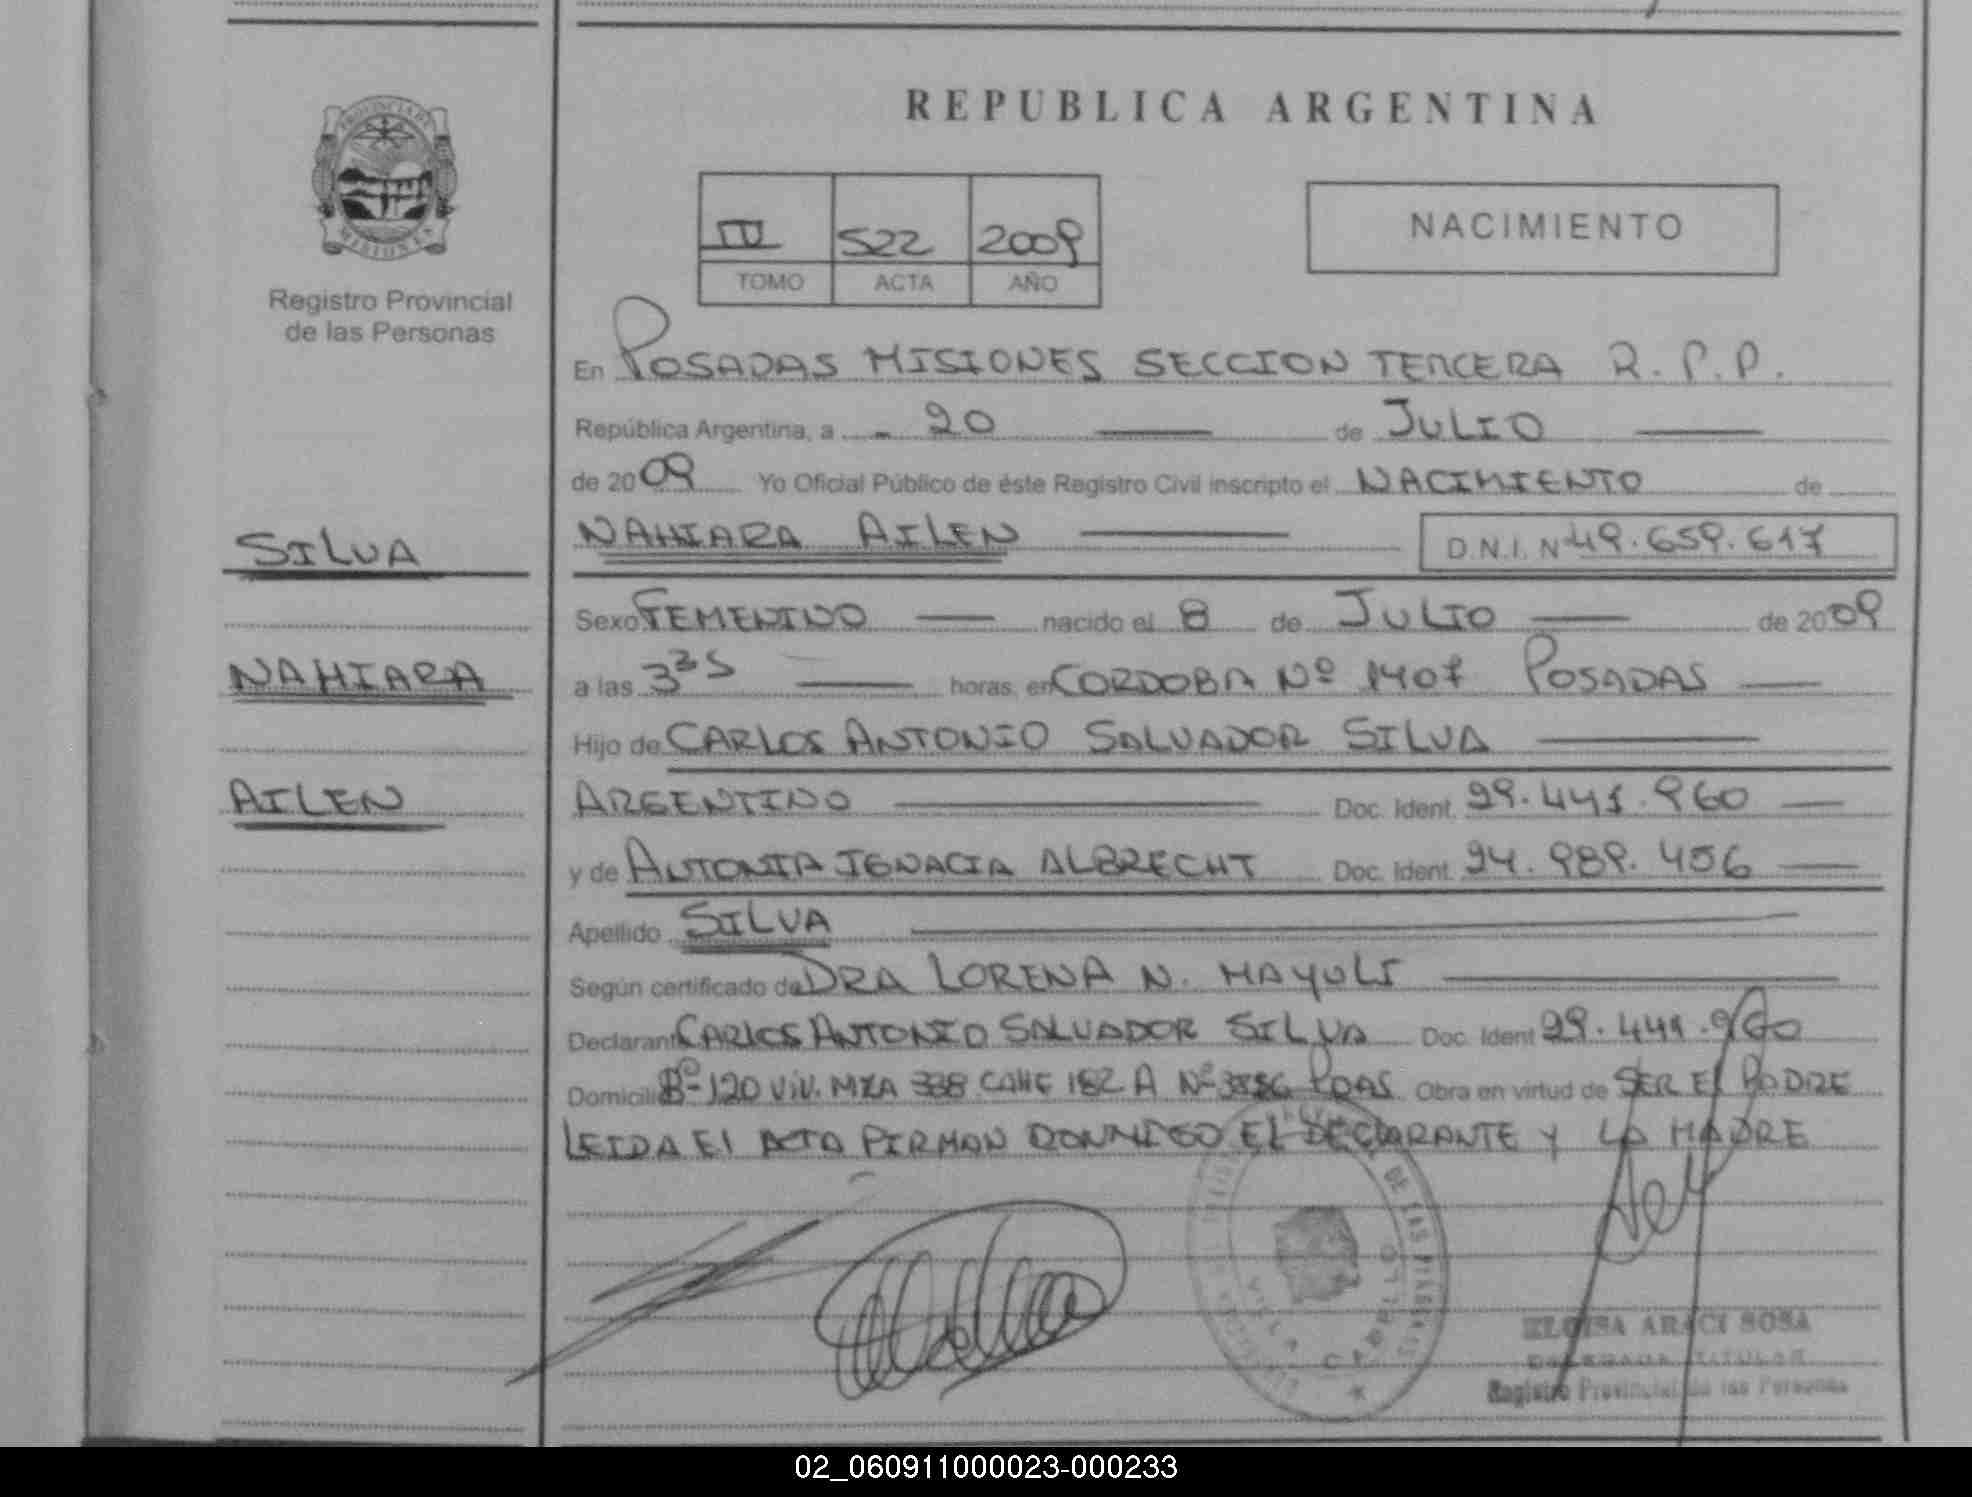 REPUBLICA ARGENTINA
PROVINCIA DE
MISIONES
Registro Provincial
de las Personas
III 522 2009
TOMO ACTA AÑO
NACIMIENTO
En POSADAS MISIONES SECCION TERCERA R.P.P.
República Argentina, a 20 de JULIO
de 2009 Yo Oficial Público de éste Registro Civil inscripto el NACIMIENTO de
SILVA
NAHIARA AILEN D.N.I. Nº 49.659.617
Sexo FEMENINO nacido el 8 de JULIO de 2009
NAHIARA
a las 3 35 horas, en CORDOBA Nº 1407 POSADAS
Hijo de CARLOS ANTONIO SALVADOR SILVA
AILEN
ARGENTINO Doc. Ident. 29.441.960
y de ANTONIA IGNACIA ALBRECHT Doc. Ident. 24.989.456
Apellido SILVA
Según certificado de DRA LORENA N. MAYULI
Declarante CARLOS ANTONIO SALVADOR SILVA Doc. Ident 29.441.960
Domicilio Bº 120 VIV. MZA 338 CALLE 182 A Nº PDAS Obra en virtud de SER EL PADRE
LEIDA EL ACTA FIRMAN CONMIGO EL DECLARANTE Y LA MADRE
DE LAS PERSONAS
VILLA CABELLO
ELOISA ARACI SOSA
DELEGADA TITULAR
Registro Provincial de las Personas
02_060911000023-000233